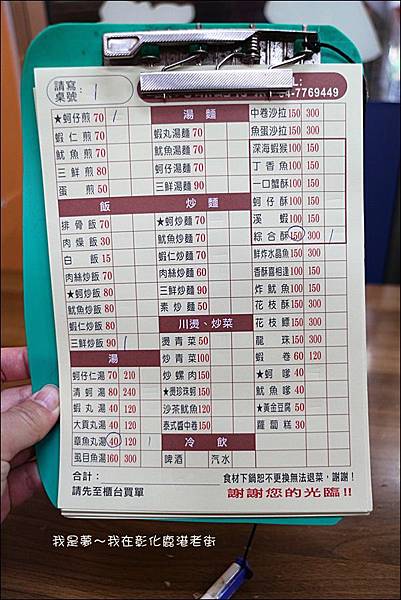 請寫
桌號： 1
04-7769449
★蚵仔煎 70
蝦仁煎 70
魷魚煎 70
三鮮煎 80
蛋煎 50
飯
排骨飯 70
肉燥飯 30
白飯 15
肉絲炒飯 60
★蚵炒飯 80
魷魚炒飯 80
蝦仁炒飯 80
三鮮炒飯 90
湯
蚵仔仁湯 70 210
清蚵湯 80 240
蝦丸湯 40 120
大貢丸湯 40 120
章魚丸湯 40 120
虱目魚湯 160 300
合計：
請先至櫃台買單
湯麵
蝦丸湯麵 70
魷魚湯麵 70
蚵仔湯麵 70
三鮮湯麵 90
炒麵
★蚵炒麵 70
魷魚炒麵 70
蝦仁炒麵 70
肉絲炒麵 60
三鮮炒麵 90
素炒麵 50
川燙、炒菜
燙青菜 50
炒青菜 100
炒螺肉 150
★燙珍珠蚵 150
沙茶魷魚 120
泰式醬中卷 150
冷飲
啤酒 汽水
中卷沙拉 150 300
魚蛋沙拉 150 300
深海蝦猴 100 150
丁香魚 100 150
一口蟹酥 100 150
蚵仔酥 100 150
溪蝦 100 150
綜合酥 150 300
鮮炸水晶魚 150 300
香酥喜相逢 100 150
炸魷魚 100 150
花枝酥 150 300
花枝鏢 150 300
龍珠 150 300
蝦卷 60 120
★蚵嗲 40
魷魚嗲 40
★黃金豆腐 50
蘿蔔糕 30
食材下鍋恕不更換無法退菜，謝謝！
謝謝您的光臨!!
我是夢～我在彰化鹿港老街